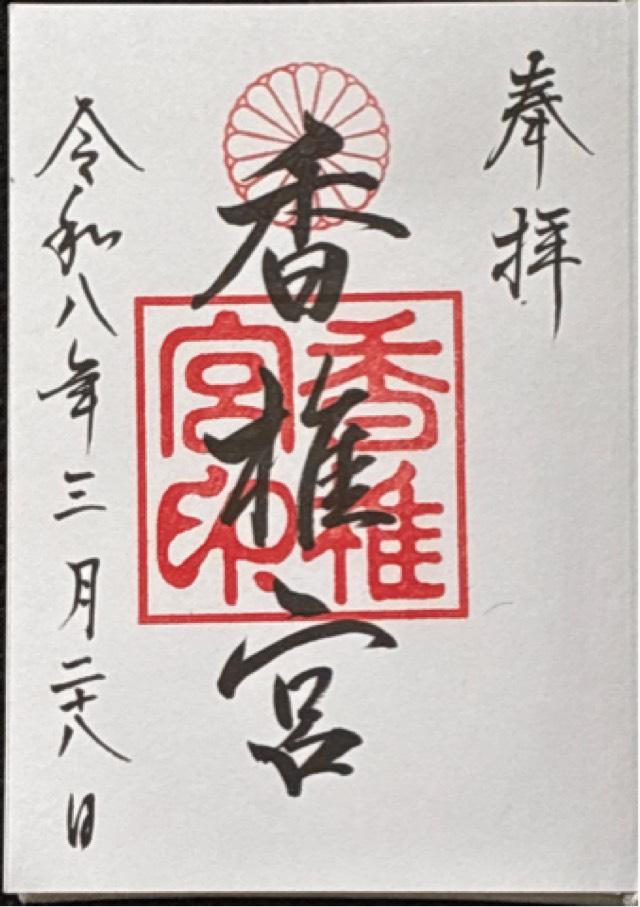 奉拝
香椎宮
香椎宮印
令和八年三月二十八日